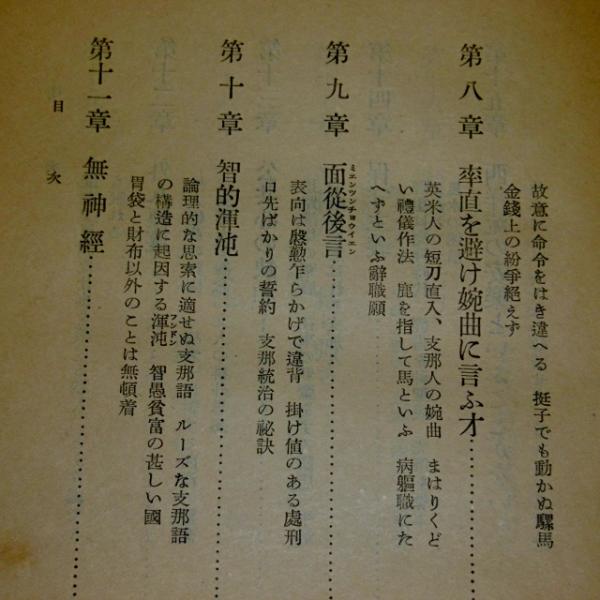 故意に命令をはき違へる 挺子でも動かぬ騾馬
金錢上の紛爭絕えず
第八章 率直を避け婉曲に言ふ才
英米人の短刀直入、支那人の婉曲 まはりくど
い禮儀作法 鹿を指して馬といふ 病軀職にた
へずといふ辭職願
第九章 面從後言
ミエンツンチョウイエン
表向は慇懃乍らかげで違背 掛け値のある處刑
口先ばかりの誓約 支那統治の祕訣
第十章 智的渾沌
論理的な思索に適せぬ支那語 ルーズな支那語
の構造に起因する渾沌 智愚貧富の甚しい國
フンドン
胃袋と財布以外のことは無頓着
第十一章 無神經
目次